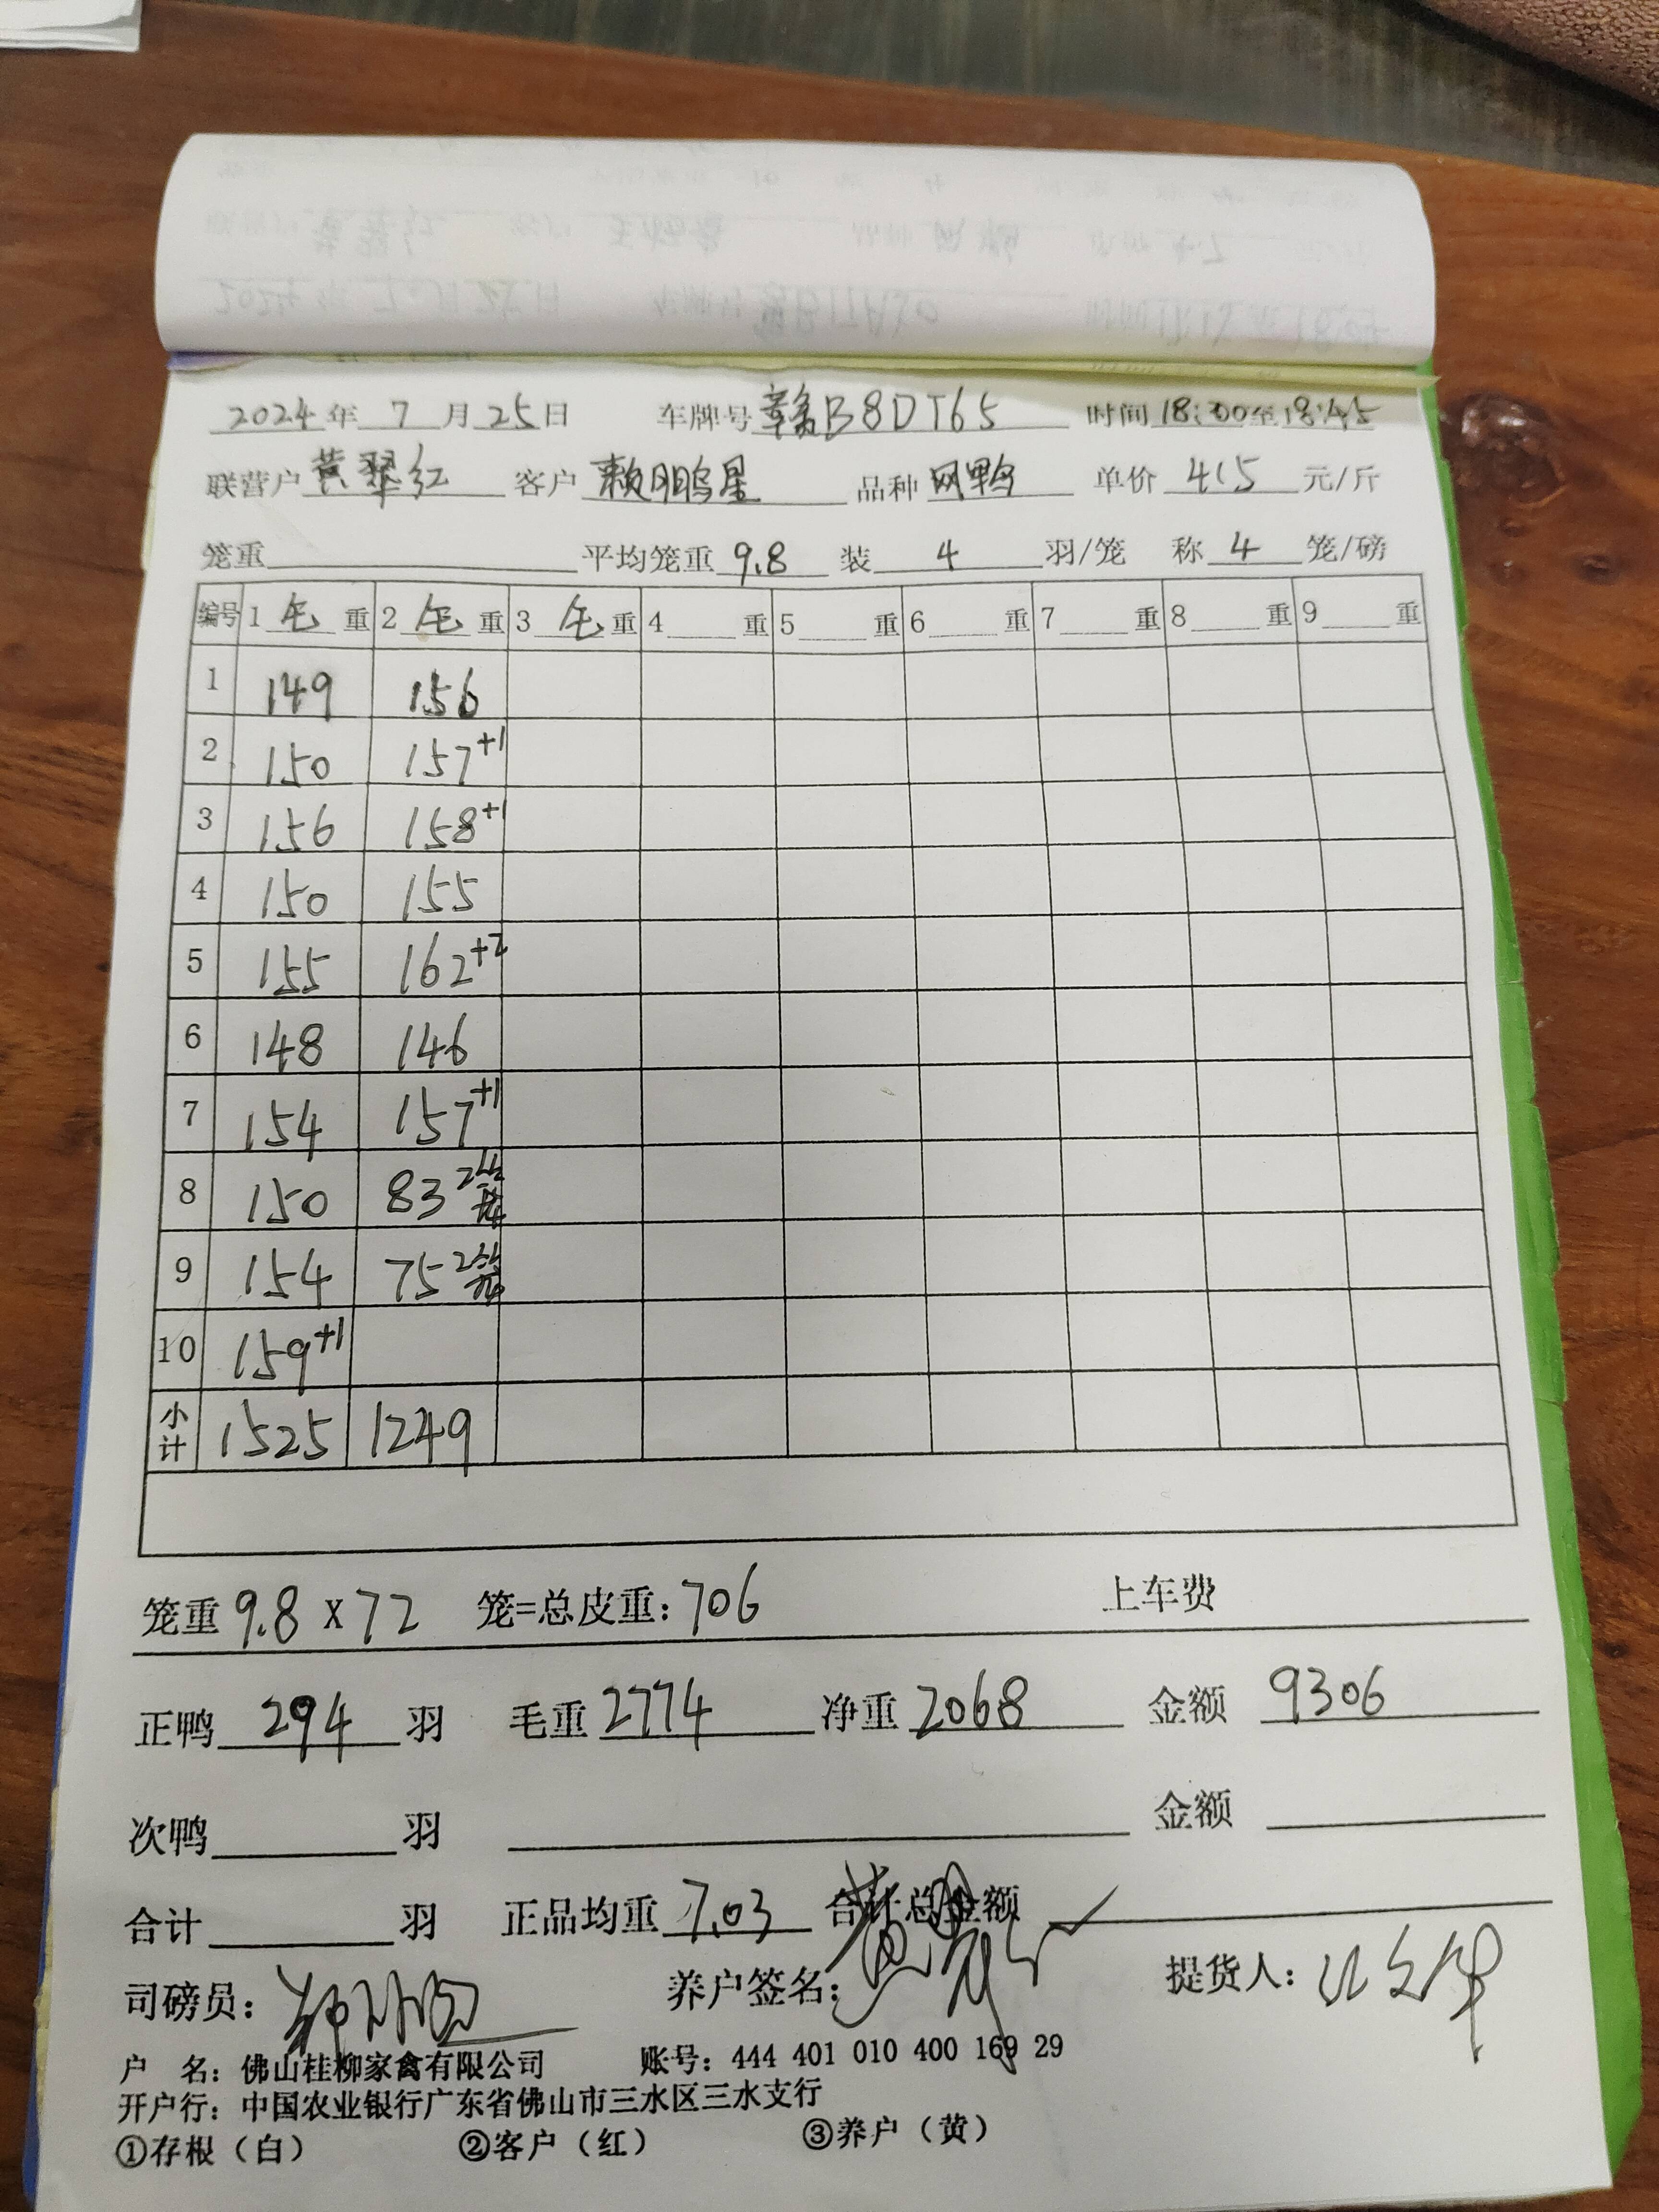 2024年 7月25日 车牌号 赣B8DT65 时间 18:00至18:45
联营户 黄翠红 客户 赖鹏星 品种 网鸭 单价 4.5 元/斤
笼重 平均笼重 9.8 装 4 羽/笼 称 4 笼/磅
编号 1 毛 重 2 毛 重 3 毛 重 4 重 5 重 6 重 7 重 8 重 9 重
1 149 156
2 150 157+1
3 156 158+1
4 150 155
5 155 162+2
6 148 146
7 154 157+1
8 150 83
9 154 75
10 159+1
小计 1525 1249
笼重 9.8 X 72 笼=总皮重: 706 上车费
正鸭 294 羽 毛重 2774 净重 2068 金额 9306
次鸭 羽 金额
合计 羽 正品均重 7.03 合计总金额
司磅员: 养户签名: 提货人:
户 名: 佛山桂柳家禽有限公司 账号: 444 401 010 400 169 29
开户行: 中国农业银行广东省佛山市三水区三水支行
①存根（白） ②客户（红） ③养户（黄）